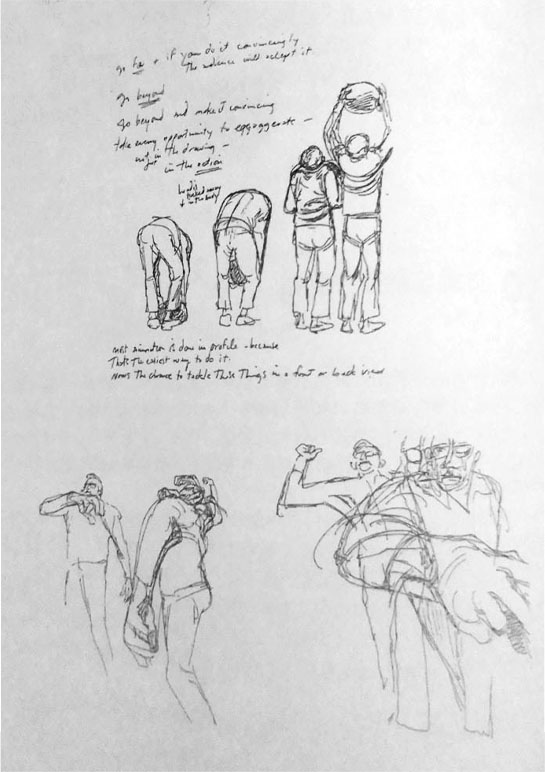 go far + if you do it convincingly
The audience will accept it
Go beyond
Go beyond and make it convincing
take every opportunity to eggaggerate —
not in the drawing —
but
in the action
heads
tucked away
in the body
most animation is done in profile - because
That's The easiest way to do it.
Now's The chance to tackle These Things in a front or back view